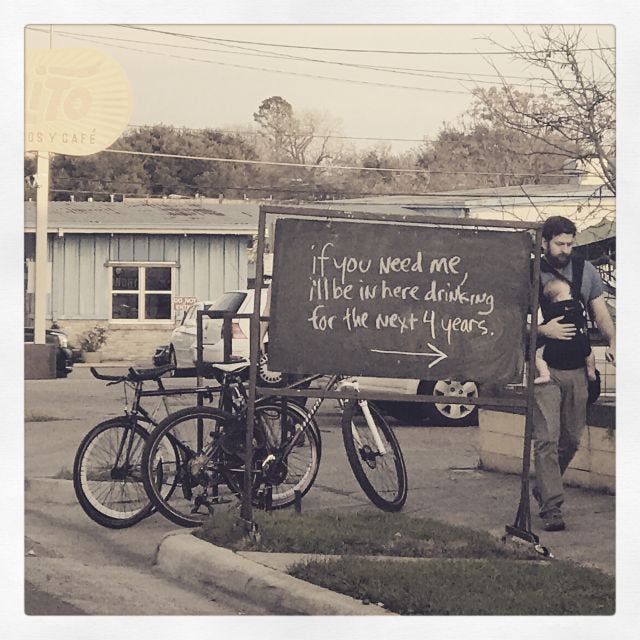 ITO
OS Y CAFÉ
DO NOT
if you need me,
i'll be in here drinking
for the next 4 years.